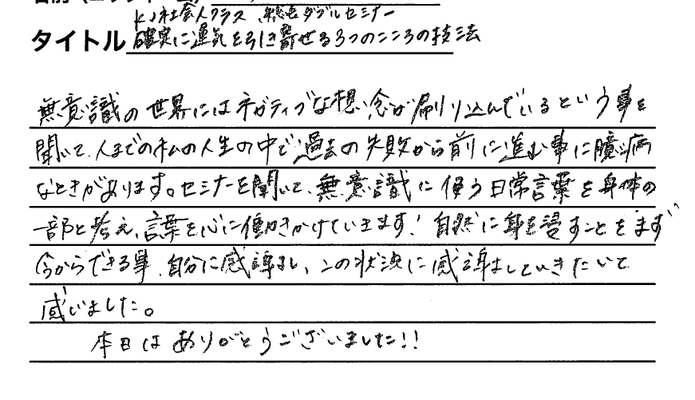 KJ社会人クラス
タイトル 確実に運気を引き寄せる3つのこころの技法
無意識の世界にはネガティブな想念が刷り込んでいるという事を
聞いて、今までの私の人生の中で過去の失敗から前に進む事に臆病
なときがあります。セミナーを聞いて、無意識に使う日常言葉を身体の
一部と考え、言葉を心に働きかけていきます!自然に身を浸すことをまず
今からできる事、自分に感謝し、この状況に感謝していきたいと
感じました。
本日はありがとうございました!!